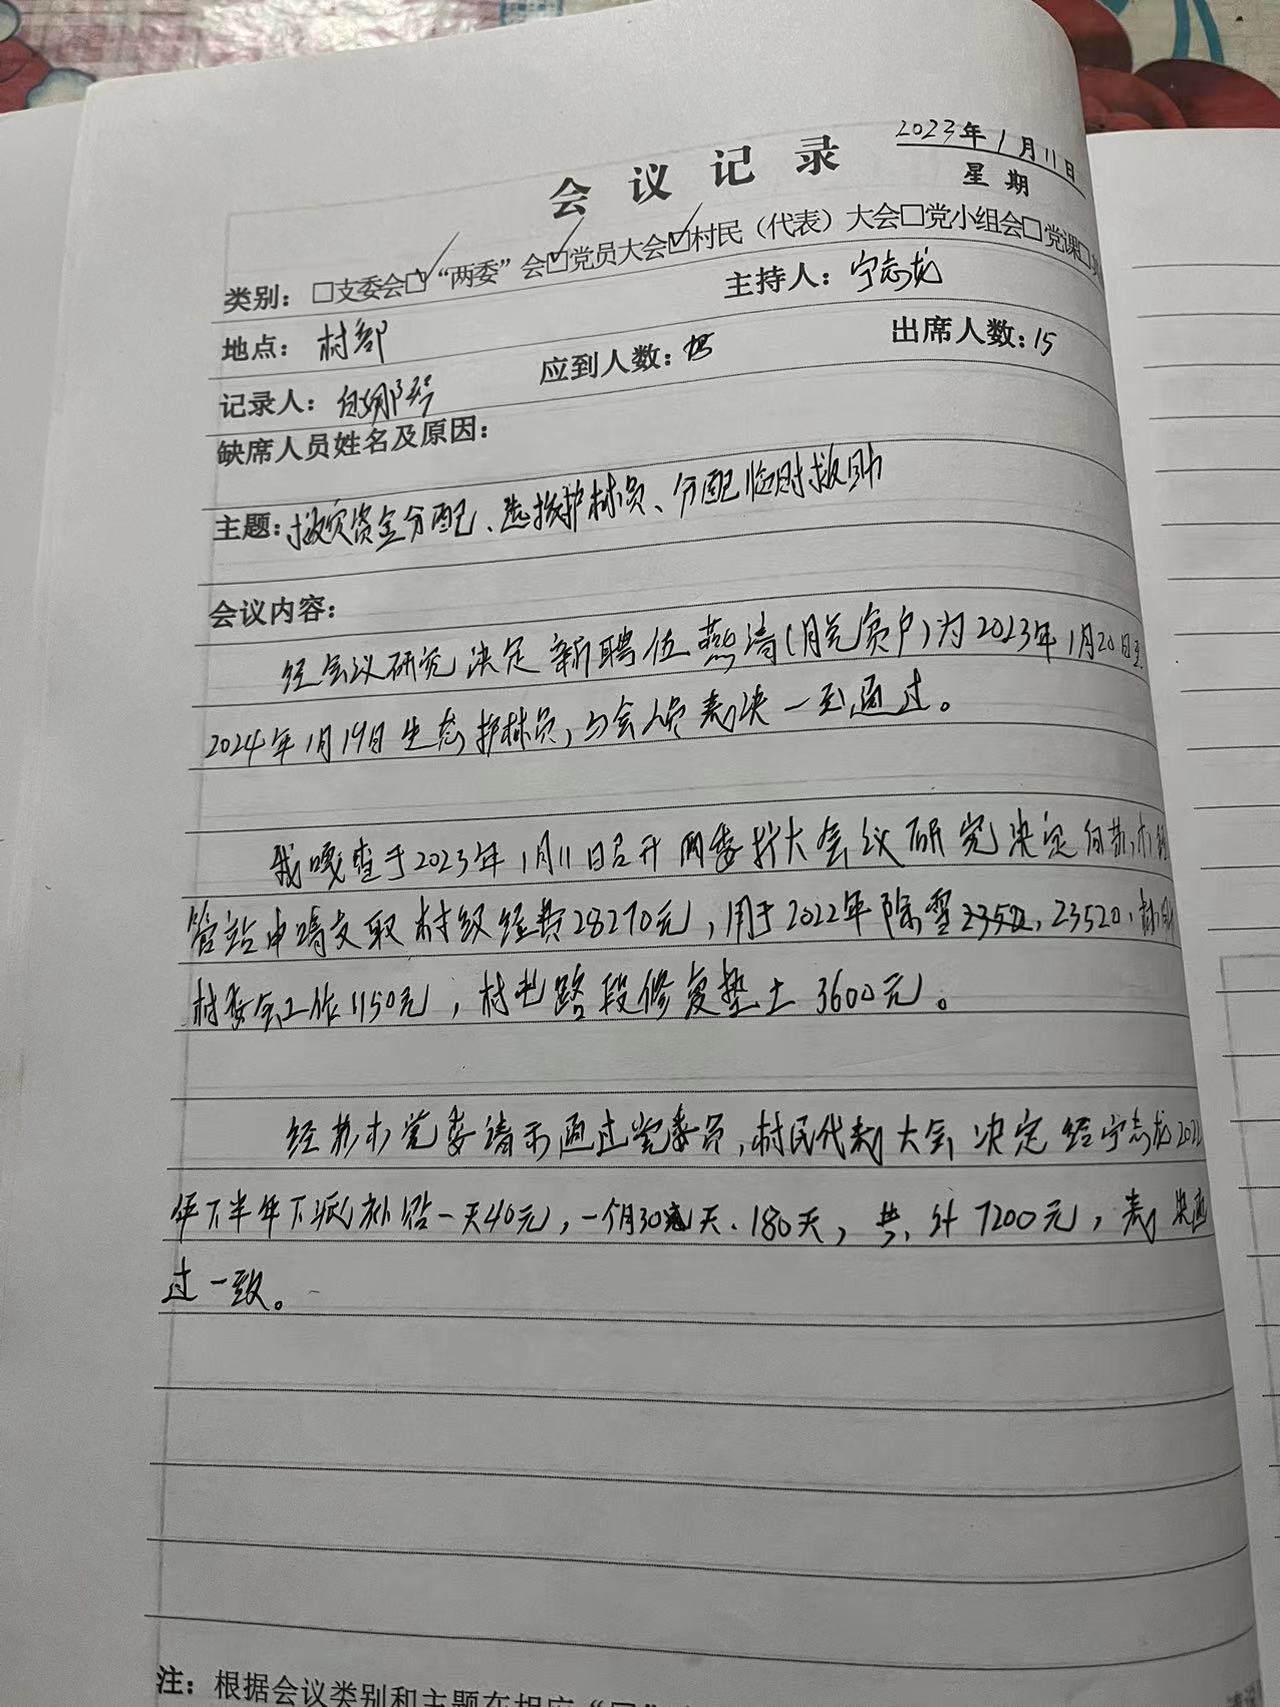 2023年1月11日
会议记录
星期
类别：□支委会☑“两委”会☑党员大会☑村民（代表）大会□党小组会□党课□
地点：村部
主持人：宁志龙
记录人：
应到人数：15
出席人数：15
缺席人员姓名及原因：
主题：救灾资金分配、选拔护林员、分配临时救助
会议内容：
经会议研究决定新聘伍燕涛(脱贫户)为2023年1月20日至
2024年1月19日生态护林员,与会人员表决一致通过。
我嘎查于2023年1月11日召开两委扩大会议研究决定向苏木经
管站申请支取村级经费28270元,用于2022年除雪23520,
村委会工作1150元,村屯路段修复垫土3600元。
经苏木党委请示通过党委员,村民代表大会决定给宁志龙2022
年下半年下派补贴一天40元,一个月30天.180天,共计7200元,表决通
过一致。
注：根据会议类别和主题在相应“□”